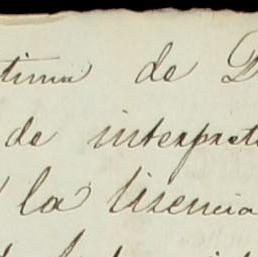 tima de D
de interpret
la lisencia